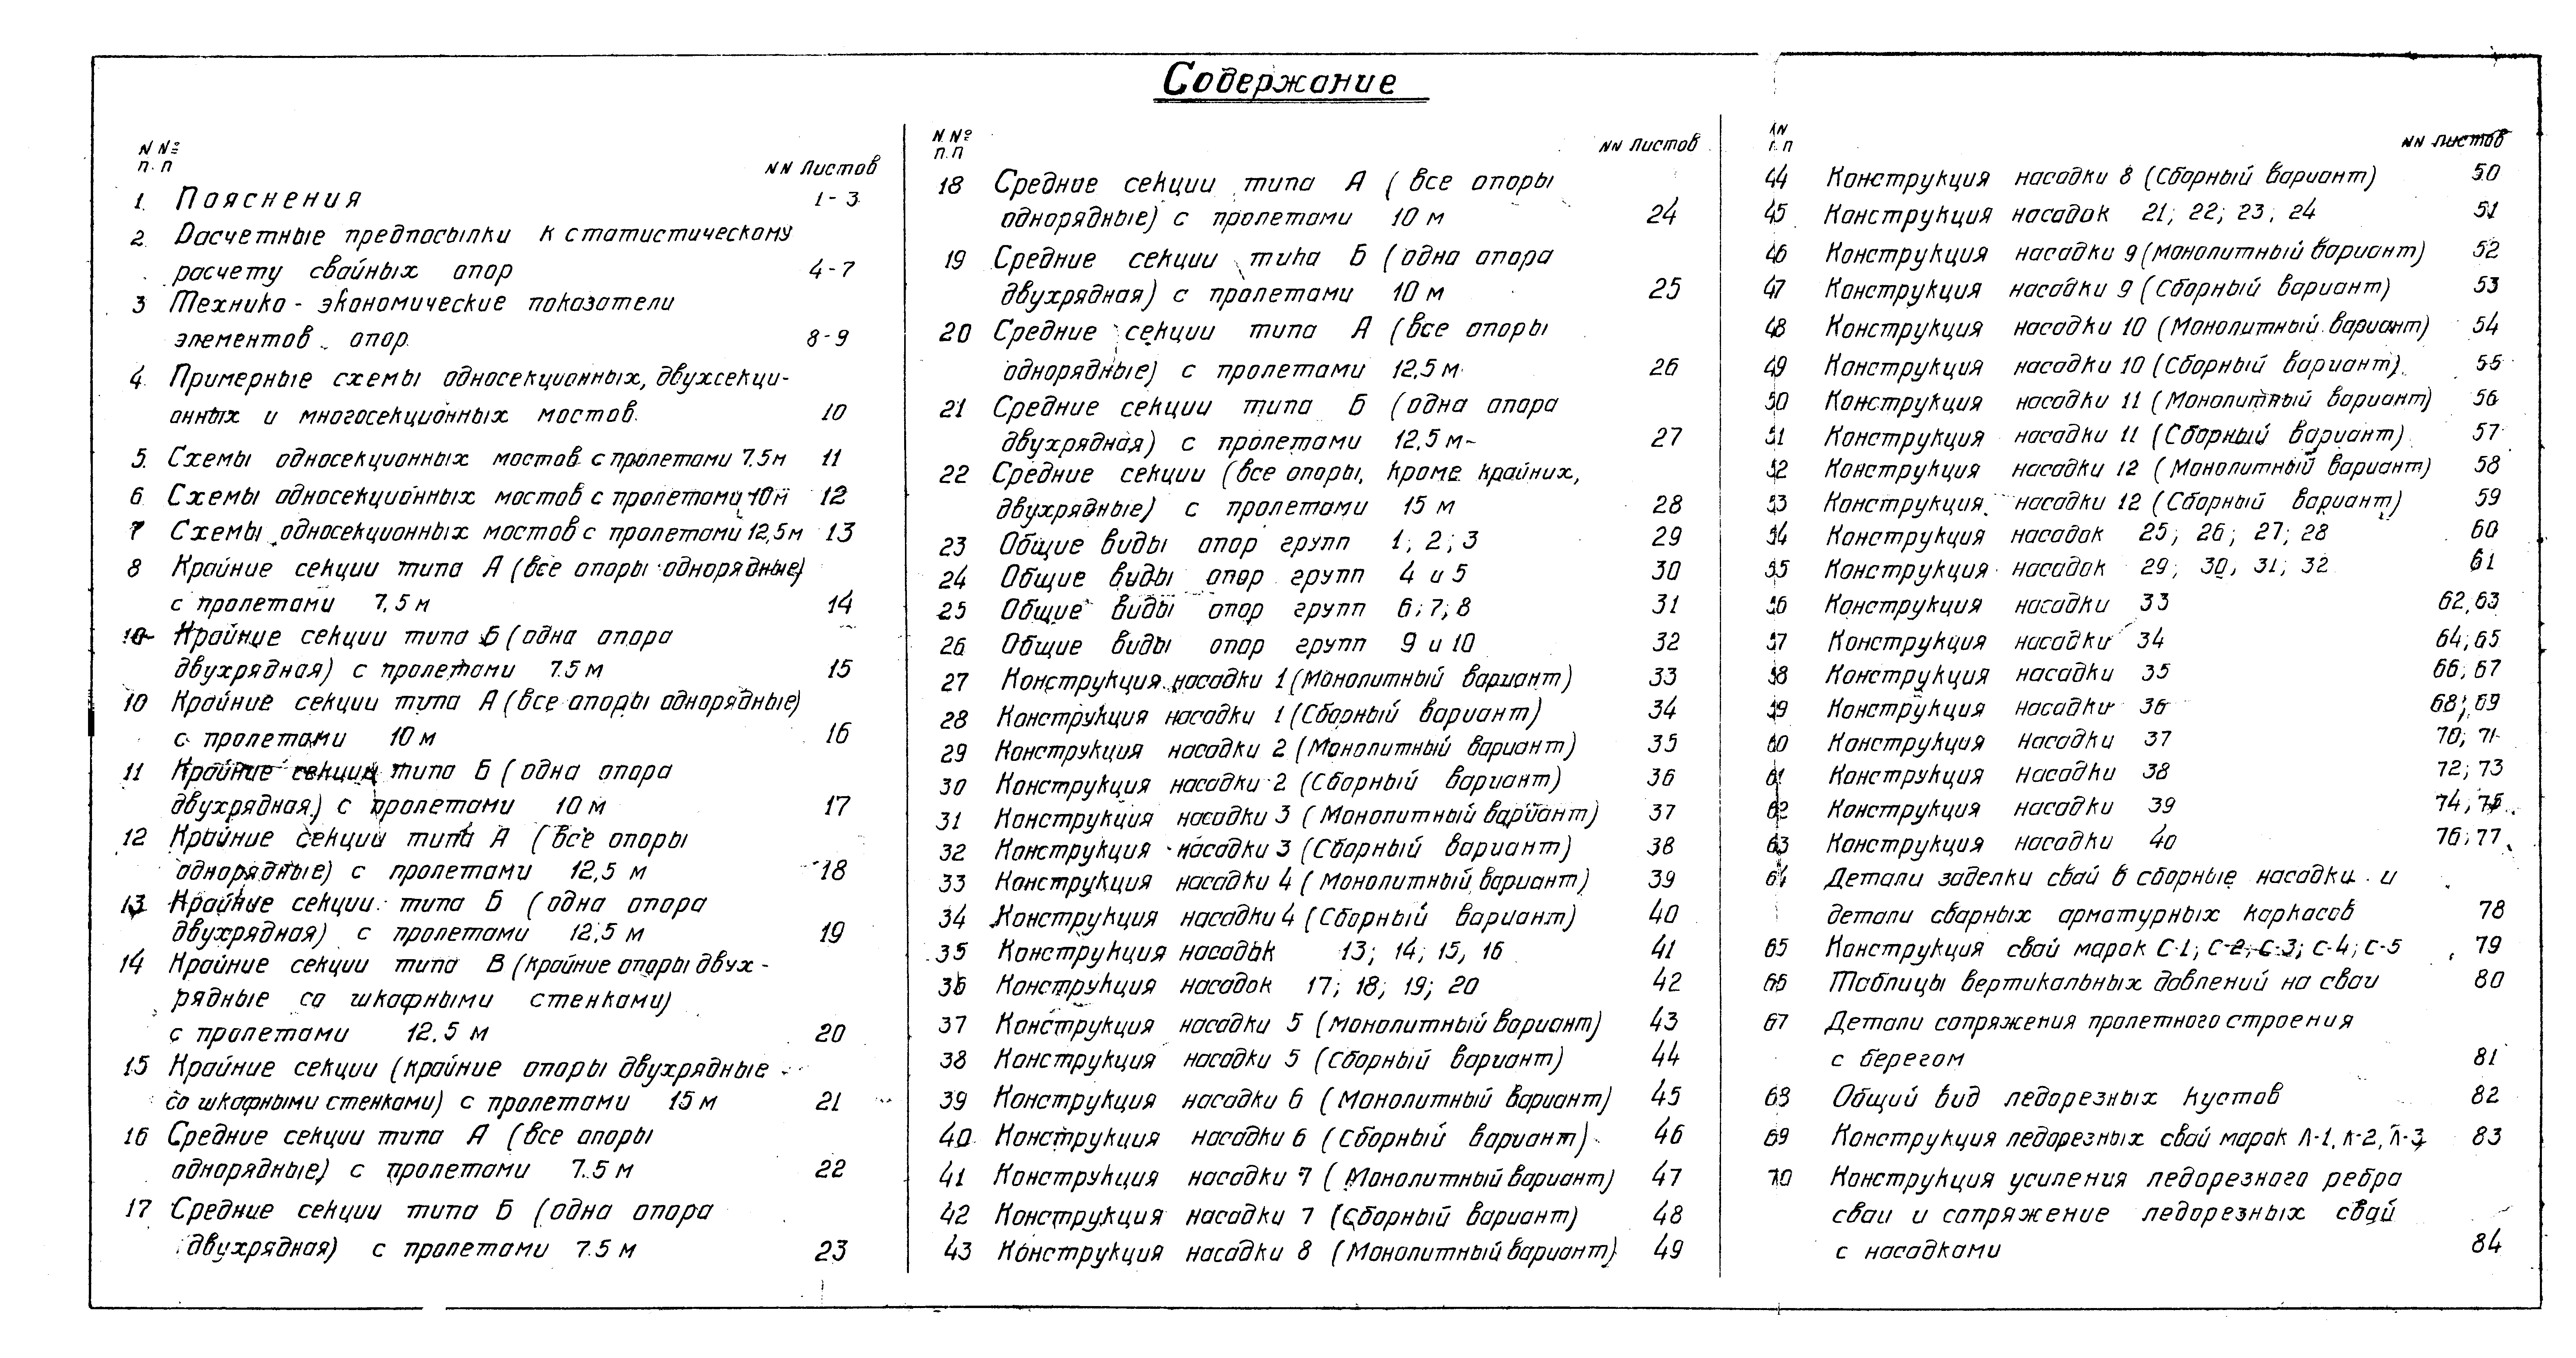 Содержание
N Nº
п.п
NN листов
1. Пояснения 1-3
2. Расчетные предпосылки к статистическому
расчету свайных опор 4-7
3 Технико-экономические показатели
элементов опор 8-9
4. Примерные схемы односекционных, двухсекци-
онных и многосекционных мостов. 10
5. Схемы односекционных мостов с пролетами 7.5м 11
6 Схемы односекционных мостов с пролетами 10м 12
7 Схемы односекционных мостов с пролетами 12,5м 13
8 Крайние секции типа А (все опоры однорядные)
с пролетами 7,5м 14
10 Крайние секции типа Б (одна опора
двухрядная) с пролетами 7.5м 15
10 Крайние секции типа А (все опоры однорядные)
с пролетами 10м 16
11 Крайние секции типа Б (одна опора
двухрядная) с пролетами 10м 17
12 Крайние секции типа А (все опоры
однорядные) с пролетами 12,5 м 18
13 Крайние секции типа Б (одна опора
двухрядная) с пролетами 12,5 м 19
14 Крайние секции типа В (крайние опоры двух-
рядные со шкафными стенками)
с пролетами 12.5 м 20
15 Крайние секции (крайние опоры двухрядные
со шкафными стенками) с пролетами 15м 21
16 Средние секции типа А (все опоры
однорядные) с пролетами 7.5 м 22
17 Средние секции типа Б (одна опора
двухрядная) с пролетами 7.5 м 23
N Nº
п.п
NN листов
18 Средние секции типа А (все опоры
однорядные) с пролетами 10 м 24
19 Средние секции типа Б (одна опора
двухрядная) с пролетами 10 м 25
20 Средние секции типа А (все опоры
однорядные) с пролетами 12,5м 26
21 Средние секции типа Б (одна опора
двухрядная) с пролетами 12,5 м 27
22 Средние секции (все опоры, кроме крайних,
двухрядные) с пролетами 15 м 28
23 Общие виды опор групп 1; 2; 3 29
24 Общие виды опор групп 4 и 5 30
25 Общие виды опор групп 6; 7; 8 31
26 Общие виды опор групп 9 и 10 32
27 Конструкция насадки 1 (Монолитный вариант) 33
28 Конструкция насадки 1 (Сборный вариант) 34
29 Конструкция насадки 2 (Монолитный вариант) 35
30 Конструкция насадки 2 (Сборный вариант) 36
31 Конструкция насадки 3 (Монолитный вариант) 37
32 Конструкция насадки 3 (Сборный вариант) 38
33 Конструкция насадки 4 (Монолитный вариант) 39
34 Конструкция насадки 4 (Сборный вариант) 40
35 Конструкция насадок 13; 14; 15, 16 41
36 Конструкция насадок 17; 18; 19; 20 42
37 Конструкция насадки 5 (Монолитный вариант) 43
38 Конструкция насадки 5 (Сборный вариант) 44
39 Конструкция насадки 6 (Монолитный вариант) 45
40 Конструкция насадки 6 (Сборный вариант) 46
41 Конструкция насадки 7 (Монолитный вариант) 47
42 Конструкция насадки 7 (Сборный вариант) 48
43 Конструкция насадки 8 (Монолитный вариант) 49
NN
п.п
NN листов
44 Конструкция насадки 8 (Сборный вариант) 50
45 Конструкция насадок 21; 22; 23; 24 51
46 Конструкция насадки 9 (Монолитный вариант) 52
47 Конструкция насадки 9 (Сборный вариант) 53
48 Конструкция насадки 10 (Монолитный вариант) 54
49 Конструкция насадки 10 (Сборный вариант) 55
50 Конструкция насадки 11 (Монолитный вариант) 56
51 Конструкция насадки 11 (Сборный вариант) 57
52 Конструкция насадки 12 (Монолитный вариант) 58
53 Конструкция насадки 12 (Сборный вариант) 59
54 Конструкция насадок 25; 26; 27; 28 60
55 Конструкция насадок 29; 30; 31; 32 61
56 Конструкция насадки 33 62,63
57 Конструкция насадки 34 64;65
58 Конструкция насадки 35 66;67
59 Конструкция насадки 36 68;69
60 Конструкция насадки 37 70;71
61 Конструкция насадки 38 72;73
62 Конструкция насадки 39 74;75
63 Конструкция насадки 40 76;77
64 Детали заделки свай в сборные насадки и
детали сварных арматурных каркасов 78
65 Конструкция свай марок С-1; С-2; С-3; С-4; С-5 79
66 Таблицы вертикальных давлений на сваи 80
67 Детали сопряжения пролетного строения
с берегом 81
68 Общий вид ледорезных кустов 82
69 Конструкция ледорезных свай марок Л-1, Л-2, Л-3 83
70 Конструкция усиления ледорезного ребра
сваи и сопряжение ледорезных свай
с насадками 84